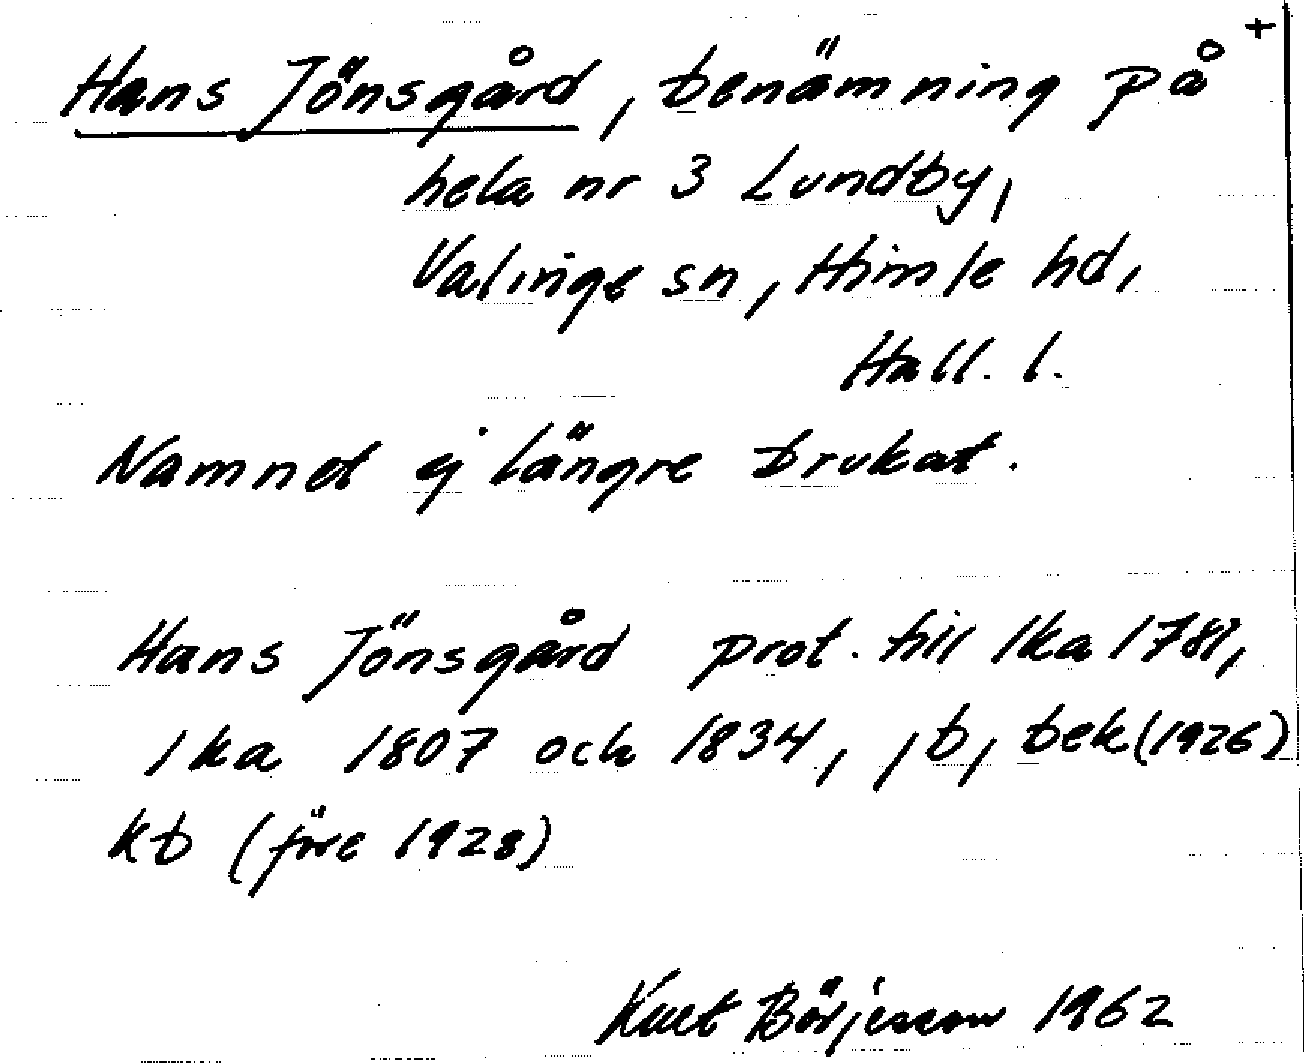 Hans Jönsgård, benämning på +
hela nr 3 Lundby,
Valinge sn, Himle hd,
Hall. l.
Namnet ej längre brukat.
Hans Jönsgård prot. till lka 1781,
lka 1807 och 1834, jb, bek (1926)
kb (före 1928)
Kurt Börjesson 1962